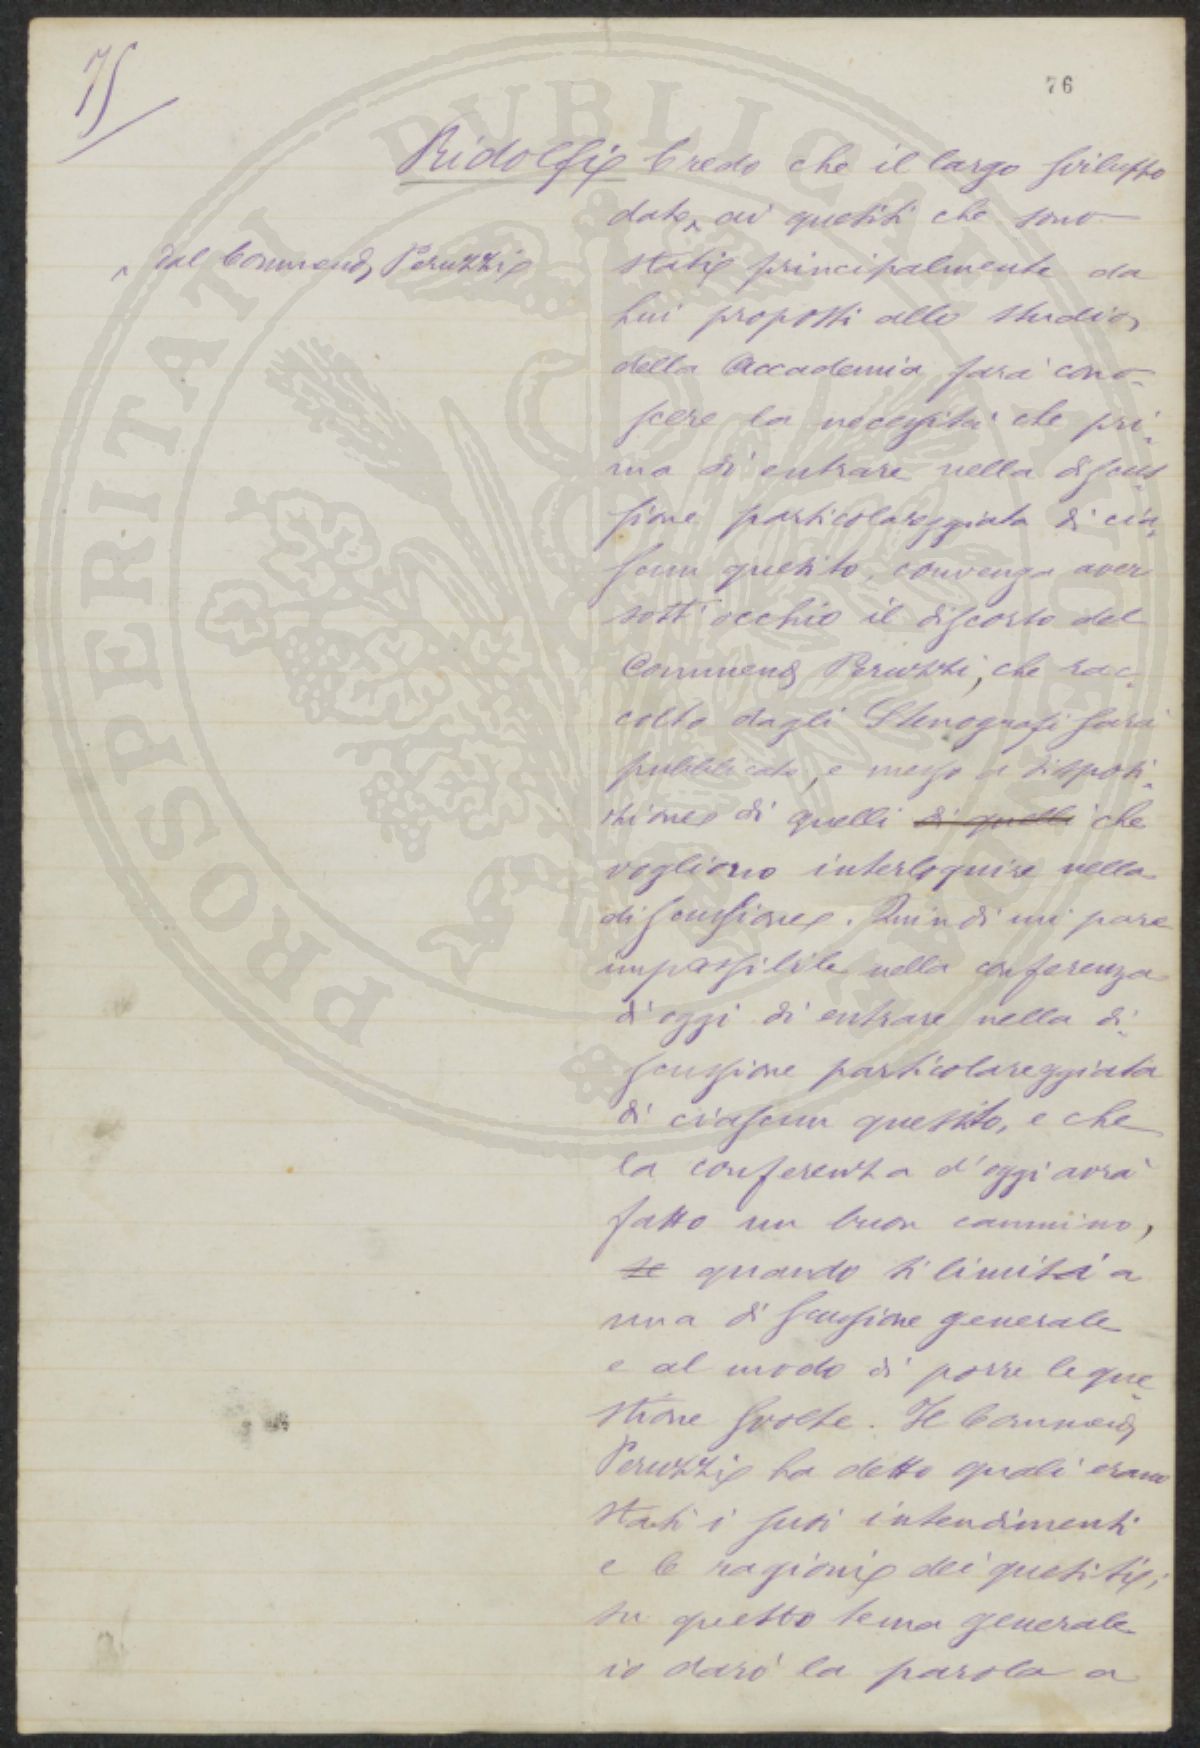 75
76
Ridolfi Credo che il largo sviluppo
dato ^ ai quesiti che sono
^ dal Commend. Peruzzi
stati principalmente da
lui proposti allo studio
della Accademia farà cono-
scere la necessità che pri-
ma di entrare nella discus-
sione particolareggiata di cia-
scun quesito, convenga aver
sott'occhio il discorso del
Commend. Peruzzi, che rac-
colto dagli Stenografi sarà
pubblicato, e messo a disposi-
zione di quelli di quelli che
vogliono interloquire nella
discussione. Quindi mi pare
impossibile nella conferenza
d'oggi di entrare nella di-
scussione particolareggiata
di ciascun quesito, e che
la conferenza d'oggi avrà
fatto un buon cammino,
se quando si limiti a
una discussione generale
e al modo di porre le que-
stione svolte. Il Commend.
Peruzzi ha detto quali erano
stati i suoi intendimenti
e le ragioni dei quesiti;
su questo tema generale
io darò la parola a
PROSPERITATI PUBLICAE AUGENDAE